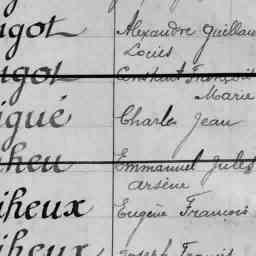 igot Alexandre Guillau
Louis
igot Constant François
Marie
igué Charles Jean
iheu Emmanuel Jules
arsène
iheux Eugène François
iheux Joseph Francis